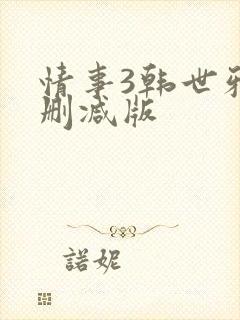 情事3韩世雅
删减版
諾妮